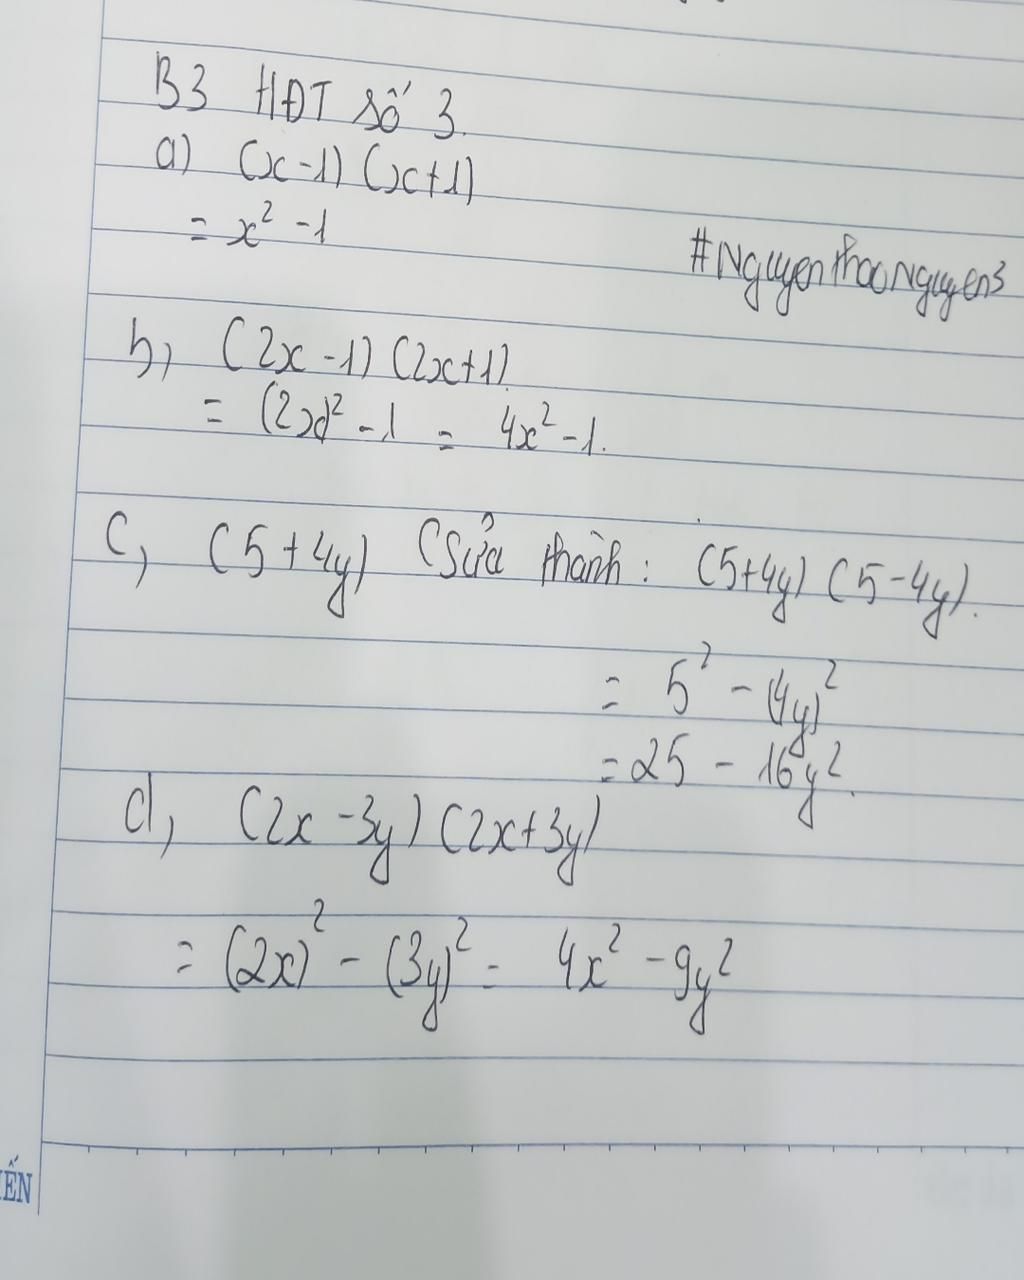 B3 HĐT số 3.
a) (x-1) (x+1)
= x² -1
#Nguyenthaonguyen3
b, (2x -1) (2x+1).
= (2x)² -1 = 4x² -1.
c, (5+4y) (Sửa thành: (5+4y) (5-4y).
= 5² - (4y)²
= 25 - 16y².
d, (2x -3y) (2x+3y)
= (2x)² - (3y)² = 4x² -9y²
ẾN